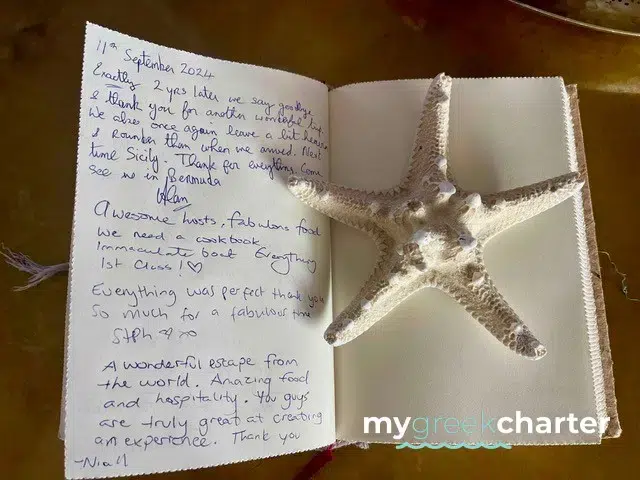 11th September 2024
Exactly 2 yrs later we say goodbye
& thank you for another wonderful trip.
We also once again leave a bit heavier
& rounder than when we arrived. Next
time Sicily. Thank for everything. Come
see us in Bermuda
Alan
Awesome hosts, fabulous food
we need a cookbook
Immaculate boat Everything
1st Class! ♡
Everything was perfect thank you
so much for a fabulous time
Stph xo
A wonderful escape from
the world. Amazing food
and hospitality. You guys
are truly great at creating
an experience. Thank you
-Niall
mygreekcharter